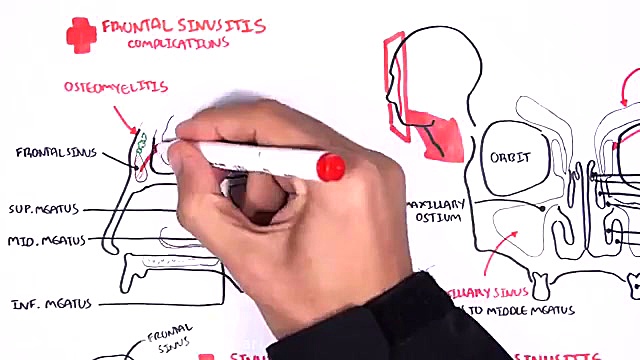 FRONTAL SINUSITIS
COMPLICATIONS
OSTEOMYELITIS
FRONTAL SINUS
ORBIT
SUP. MEATUS
MAXILLARY
OSTIUM
MID. MEATUS
INF. MEATUS
SINUS
TO MIDDLE MEATUS
FRONTAL
SINUS